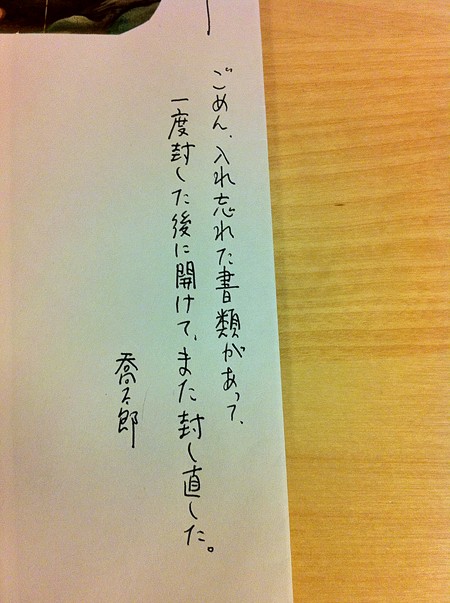 ごめん、入れ忘れた書類があって、
一度封した後に開けて、また封し直した。
喬太郎